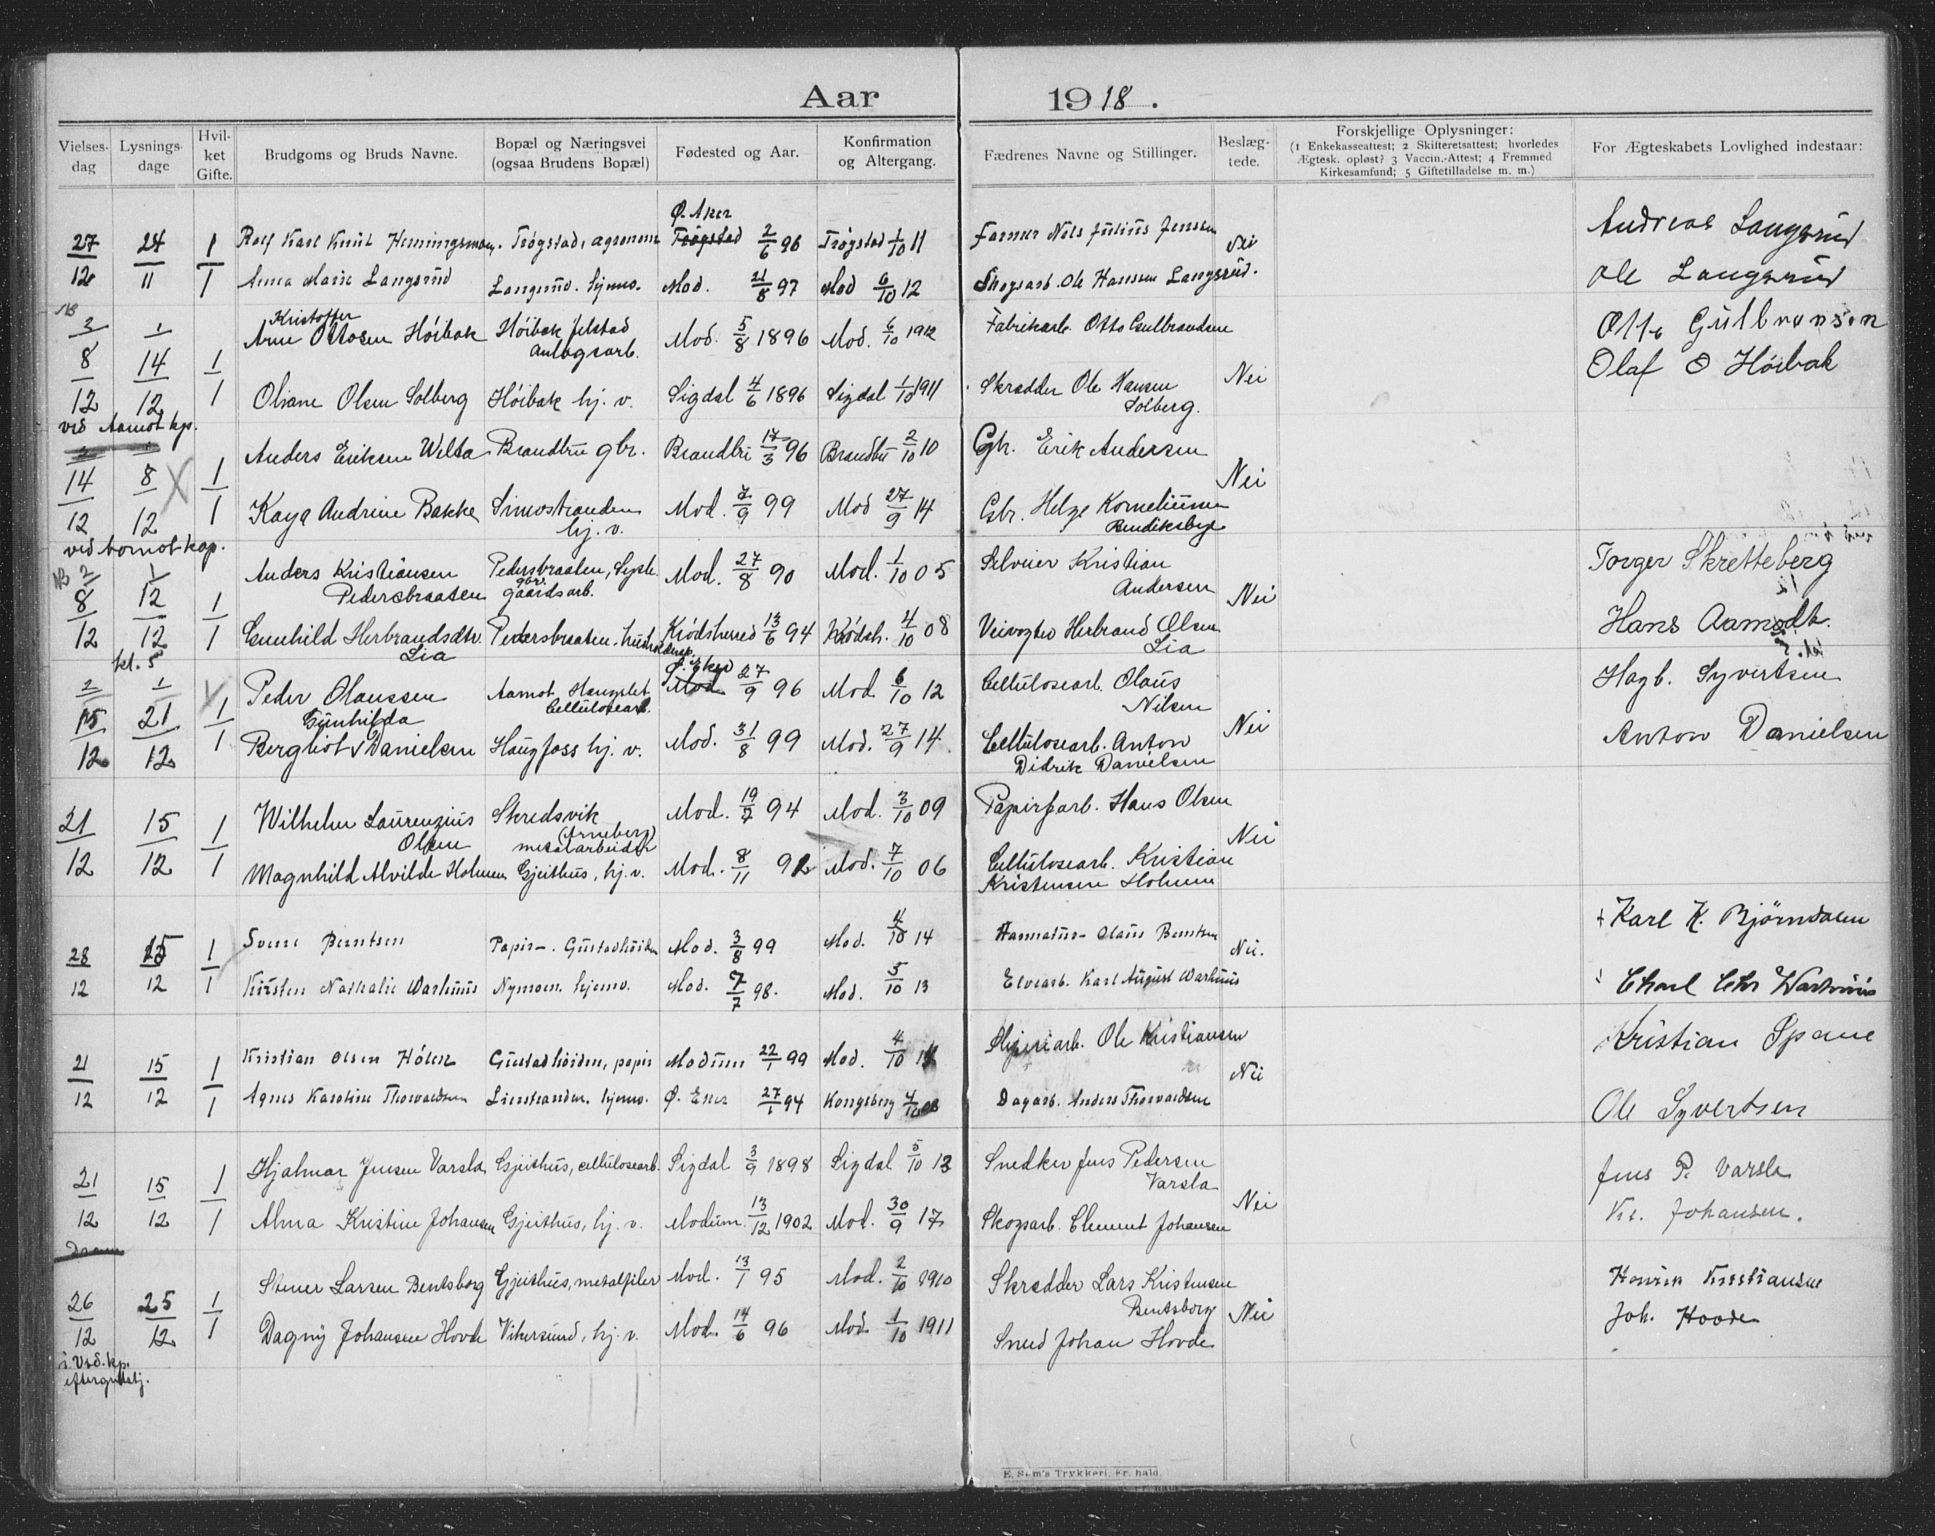 Aar 1918.
Vielses-dag
Lysnings-dage
Hvil-ket Gifte.
Brudgoms og Bruds Navne.
Bopæl og Næringsvei
(ogsaa Brudens Bopæl)
Fødested og Aar.
Konfirmation og Altergang.
Fædrenes Navne og Stillinger.
Beslæg-tede.
Forskjellige Oplysninger:
(1 Enkekasseattest; 2 Skifteretsattest; hvorledes
Ægtesk. opløst? 3 Vaccin.-Attest; 4 Fremmed
Kirkesamfund; 5 Giftetilladelse m. m.)
For Ægteskabets Lovlighed indestaar:
Ø. Aker
27/12 24/11 1/1 Rolf Karl Knut Hemingsmoen, Trøgstad, agronom Trøgstad 2/6 96 Trøgstad 1/10 11 Farmer Nils Julius Jenssen Nei Andreas Langsrud
Anna Marie Langsrud Langsrud. hjemv. Mod. 21/8 97 Mod 6/10 12 Skogsarb. Ole Hanssen Langsrud. Ole Langsrud
NB
Kristoffer
3/8/12 1/14/12 1/1 Arne Ottosen Høibak Høibak Jelstad Mod. 5/8 1896 Mod. 6/10 1912 Fabrikarb. Otto Gulbrandsen Otto Gulbransen
anlagsarb. Olaf O Høibak
Olsen Solberg Høibak hj. v. Sigdal 4/6 1896 Sigdal 1/10 1911 Skrædder Ole Hansen Nei
Solberg.
ved Aamot kp.
14/12 8/12 1/1 Anders Eriksen Welta Brandbu gbr. Brandbu 17/3 96 Brandbu 2/10 10 Gbr. Erik Andersen Nei
Kaya Andrine Bakke Simostranden Mod. 7/9 99 Mod 27/9 14 Gbr. Helge Korneliussen
hj. v. Bendiksbye
ved Aamot kap.
NB 2/8/12 1/12/12 1/1 Anders Kristiansen Pedersbraaten, Mod. 27/8 90 Mod. 1/10 05 Selveier Kristian Torger Skretteberg
Pedersbraaten gbr. gaardsarb. Andersen Nei
Gunhild Herbrandsdtr. Pedersbraaten. Krødsherred 13/6 94 Krødsh. 4/10 08 Veivogter Herbrand Olsen Hans Aamodt
Lia Lia
kl. 5 Ø. Eker kl. 5
2/15/12 1/21/12 1/1 Peder Olaussen Aamot Mod 27/9 96 Mod. 6/10 12 Cellulosearb. Olaus Hagb. Syvertsen
Gunhilda Cellulosearb. Nilsen
Bergliot Danielsen Haugfoss hj. v. Mod. 31/8 99 Mod. 27/9 14. Cellulosearb. Anton Nei Anton Danielsen
Didrik Danielsen
21/12 15/12 1/1 Wilhelm Laurenzius Skredsvik Mod. 19/7 94 Mod. 3/10 09 Papirfarb. Hans Olsen Nei
Olsen (Arneberg) metalarbeider
Magnhild Alvilde Holmen Gjeithus, hj. v. Mod. 8/11 92 Mod. 7/10 06 Cellulosearb. Kristian
Kristensen Holmen
28/12 15/12 1/1 Sverre Berntsen Papir-. Gustadheiden Mod. 3/8 99 Mod. 4/10 14 Olaus Berntsen Nei. Karl K. Bjørndalen
Kirsten Nathalie Warhuus Nymoen. hjemv. Mod. 7/7 98. Mod. 5/10 13 Elvearb. Karl August Warhuus
21/12 15/12 1/1 Kristian Olsen Holen Gustadheiden, papir Modum 22/1 99 Mod. 4/10 Sliperiarb. Ole Kristiansen Nei Kristian Spone
Agnes Karoline Thorvaldsen Lierstranden. hjemv. Ø. Eker 27/1 94 Kongsberg 4/10 08 Dagarb. Anders Thorvaldsen Ole Syvertsen
21/12 15/12 1/1 Hjalmar Jensen Varsla Gjeithus, cellulosearb. Sigdal 3/9 1898 Sigdal 5/10 13 Snedker Jens Pedersen Nei Jens P. Varsla
Varsla
Alma Kristine Johansen Gjeithus, hj. v. Modum 13/12 1902 Mod. 30/9 17 Skogsarb. Clement Johansen Kr. Johansen.
26/12 25/12 1/1 Steiner Larsen Bentsborg Gjeithus, metalfiler Mod. 13/1 95 Mod. 2/10 1910 Skrædder Lars Kristensen Nei Henrik Kristiansen
Bentsborg
Dagny Johansen Hovde Vikersund, hj. v. Mod. 14/6 96 Mod. 1/10 1911 Sned Johan Hovde Joh. Hovde
i Vid. kp.
E. Sem's Trykkeri, Fr.hald.